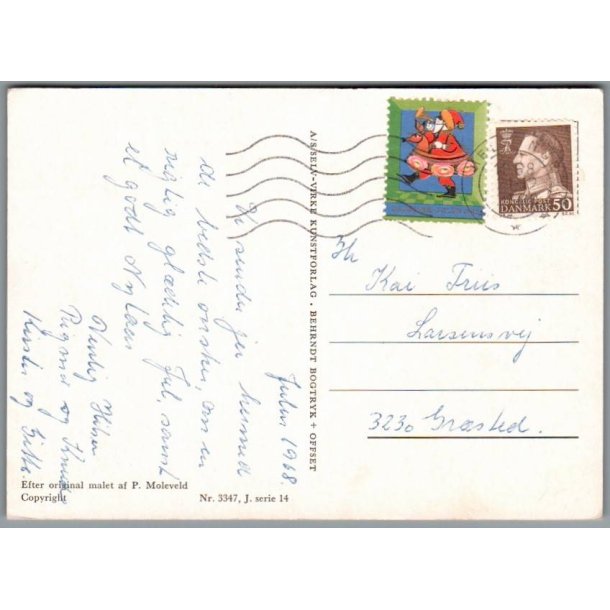 Julen 1968.
Vi sender jer hermed
de bedste ønsker, om en
rigtig glædelig Jul, samt
et godt Nytaar
Venlig Hilsen
og Knud
Kirsten og Gitte.
A/S/SELV-VIRKE KUNSTFORLAG . BEHRNDT BOGTRYK + OFFSET
KONGELIG POST
DANMARK 50
Hr
Kai Friis
Larsensvej
3230 Græsted.
Efter original malet af P. Moleveld
Copyright Nr. 3347, J. serie 14